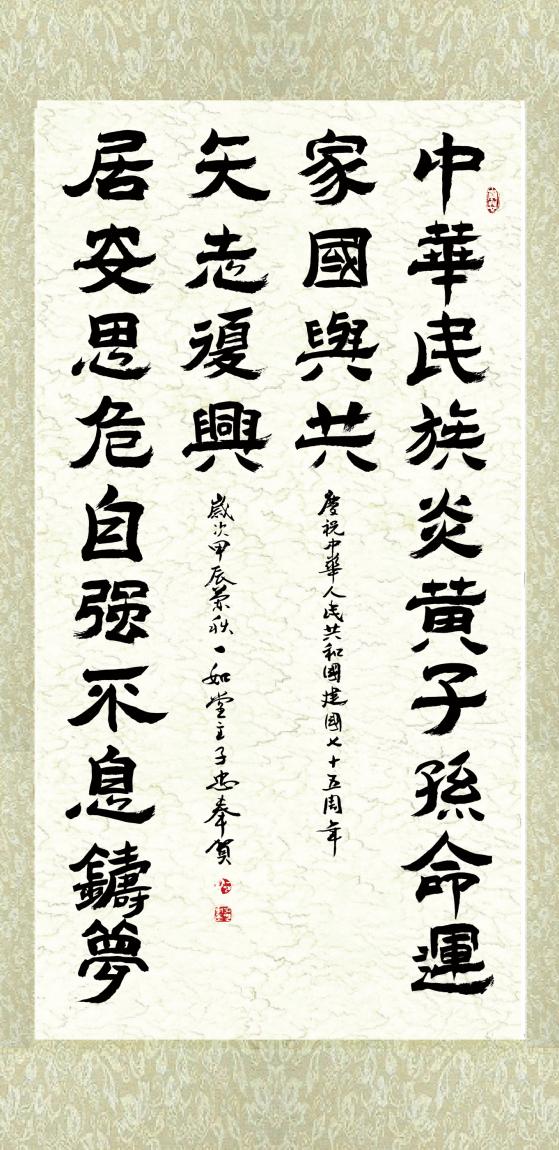 中華民族炎黄子孫命運
家國與共
居安思危自强不息鑄夢
矢志復興
慶祝中華人民共和國建國七十五周年
歲次甲辰菊秋一如堂主子忠奉賀